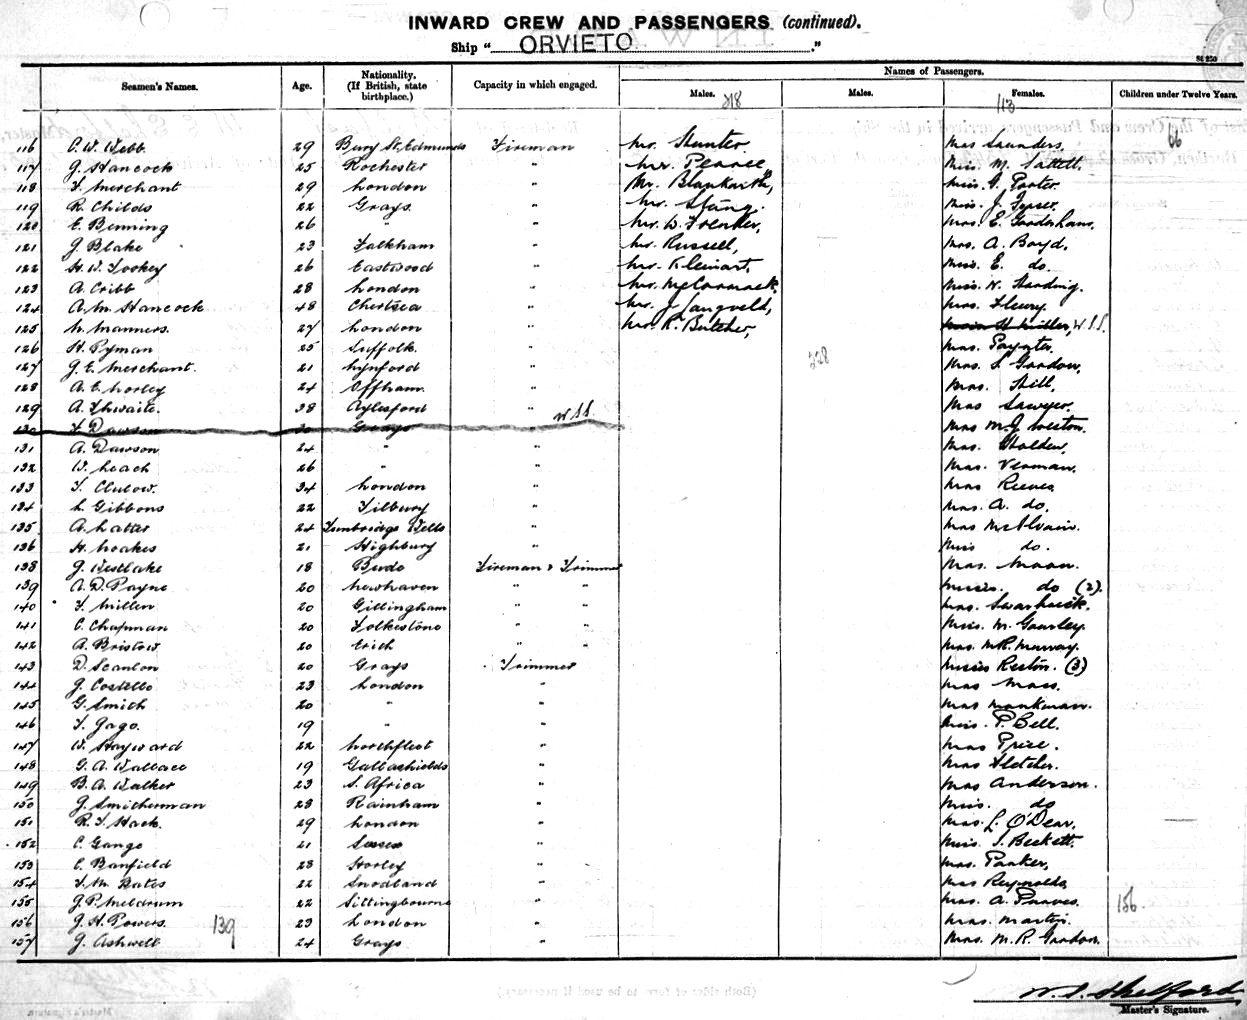 INWARD CREW AND PASSENGERS (continued).
Ship "ORVIETO"
Seamen's Names. Age. Nationality. (If British, state birthplace.) Capacity in which engaged. Names of Passengers.
Males. Males. Females. Children under Twelve Years.
218 113 66
116 C. W. Webb. 29 Bury St. Edmunds Fireman Mr. Hunter Mrs Saunders.
117 G. Hancock 25 Rochester " Mr. Pearce, Miss. M.
118 F. Merchant 29 London " Mr. Miss. G. Porter.
119 R. Childs 22 Grays. " Mr. Miss. J.
120 E. Benning 26 " " Mr. W. Mrs. E. Gooderham.
121 G. Blake 23 " Mr. Russell, Mrs. A. Boyd,
122 H. W. Tookey 26 Eastwood " Mr. Kleinart. Miss. E. do.
123 A. Cribb 28 London " Mr. McCormack, Miss. N. Harding.
124 A. M. Hancock 48 Chertsea " Mr. J. Langveld, Mrs. Fleury.
125 N. Manners. 27 London " Mr. R. Butcher, Miss H. Miller, W.S.S.
126 H. Pyman 25 Suffolk. " Mrs. Paynter.
127 G. E. Merchant. 21 Lynford " Mrs. S. Gordon,
128 A. E. Morley 24 Offham. " 228 Mrs. Hill,
129 A. Thwaite. 38 Aylesford " Mrs Sawyer.
130 F. Dawson Grays W.S.S. Mrs M. J. Weston.
131 A. Dawson 24 " " Mrs. Holden,
132 W. Leach 26 " " Mrs.
133 F. Clulow. 34 London " Mrs Reeves
134 L. Gibbons 22 Tilbury " Mrs. A. do.
135 A. Latter 24 Tunbridge Wells " Mrs McIlvain.
136 H. Noakes 21 Highbury " Miss do.
138 G. Westlake 18 Bude Fireman & Trimmer Mrs. Moon.
139 A. D. Payne 20 Newhaven " " Misses. do (2).
140 F. Millen 20 Gillingham " " Mrs.
141 C. Chapman 20 Folkestone " " Miss. M. Gourley.
142 A. Bristow 20 Erith " " Mrs. M. R. Murray.
143 D. Scanlon 20 Grays Trimmer Misses Reston. (3)
144 G. Costello 23 London " Mrs Moss.
145 G. Smith 20 " " Mrs
146 F. Gago. 19 " " Miss. P. Bell.
147 W. Hayward 22 Northfleet " Mrs Price.
148 G. A. Wallace 19 Gallashields " Mrs Fletcher.
149 B. A. Walker 23 S. Africa " Mrs Anderson.
150 G. Smitherman 28 Rainham " Miss. do
151 R. F. Hack. 29 London " Mrs. L. O'Dear,
152 C. Gange 21 Sussex " Miss. S. Beckett.
153 C. Banfield 23 Horley " Mrs. Parker,
154 F. M. Bates 22 Snodland " Mrs Reynolds,
155 G. P. Meldrum 22 Sittingbourne " Mrs. A. Purves. 156.
156 G. H. Powers. 139 23 London " Mrs. Martin.
157 G. Ashwell 24 Grays " Mrs. M. R. Gordon.
Master's Signature.